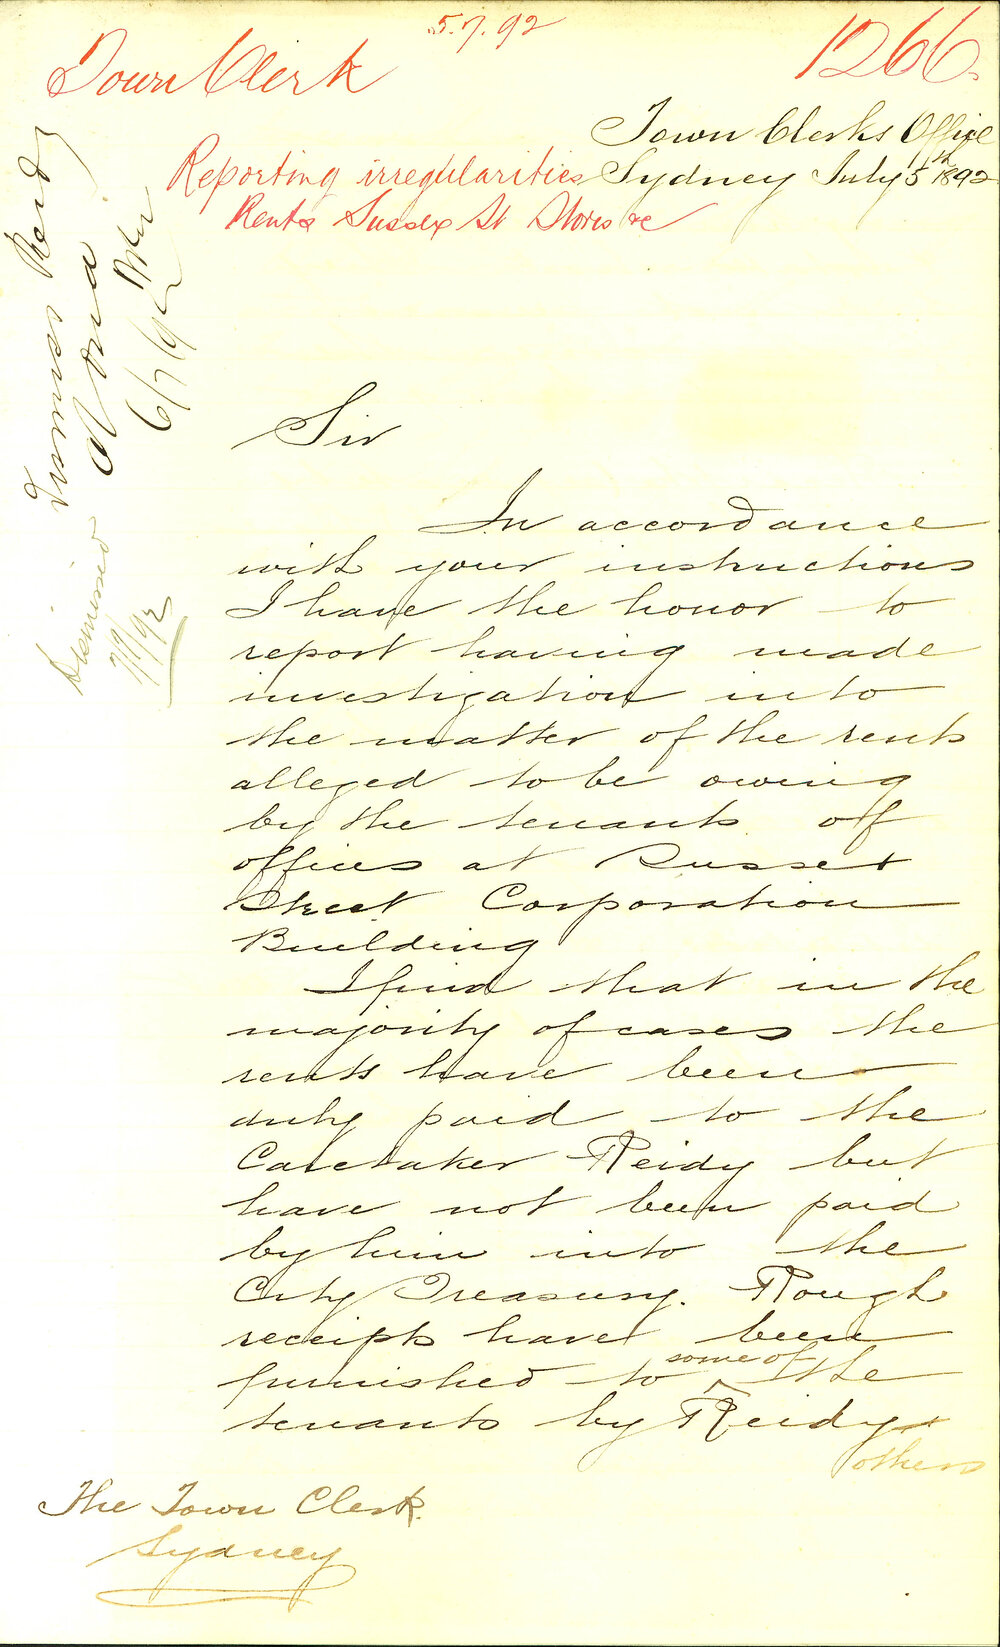 5.7.92
1266.
Town Clerk
Town Clerks Office
Sydney July 5th 1892
Reporting irregularities
Rents Sussex St Stores re
Summss Reidy
at once
6/7/92
Dismissed
7/7/92
Sir
In accordance
with your instructions
I have the honor to
report having made
investigation into
the matter of the rents
alleged to be owing
by the tenants of
offices at Sussex
Street Corporation
Building
I find that in the
majority of cases the
rents have been
duly paid to the
Caretaker Reidy but
have not been paid
by him into the
City Treasury. Rough
receipts have been
furnished to some of the
tenants by Reidy &
others
The Town Clerk.
Sydney